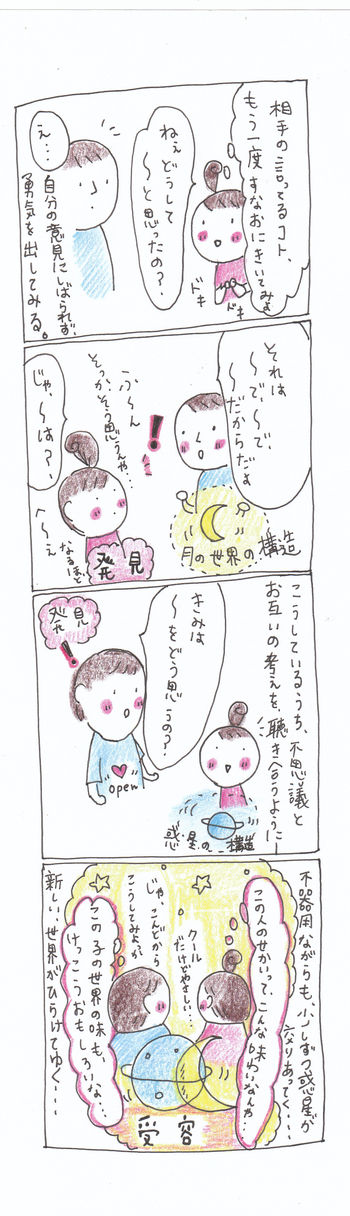 相手の言ってるコト、
もう一度すなおにきいてみよ
ねぇどうして
〜と思ったの？
え…
ドキ
ドキ
自分の意見にしばられず、
勇気を出してみる。
それは
〜で、〜で、
だからだよ
!
ふ〜ん
そっか、そう思うんや…
じゃ、〜は？
へ〜ぇ
なるほど
発見
月の世界の構造
こうしているうち、不思議と
お互いの考えを、聴き合うように…
きみは
〜をどう思うの？
発見
!
open
惑星の構造
不器用ながらも、少しずつ惑星が
交りあってく…
この人のせかいって、こんな味わいなんや
クール
だけどやさしい…
じゃ、こんどから
こうしてみよっか
この子の世界の味も、
けっこうおもしろいな…
新しい世界がひらけてゆく…
受容